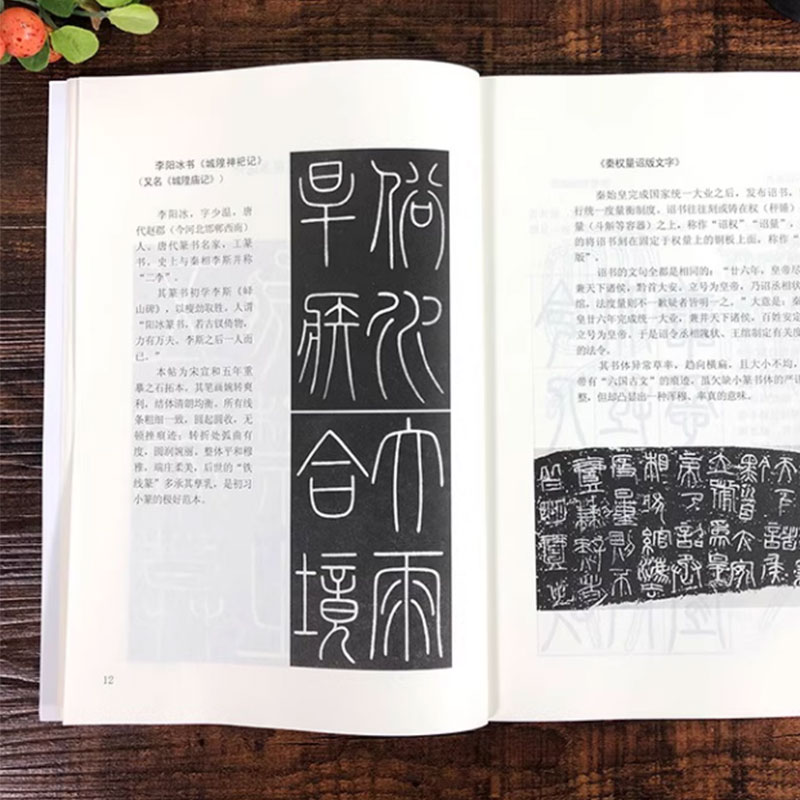 李阳冰书《城隍神祀记》
（又名《城隍庙记》）
李阳冰，字少温，唐
代赵郡（今河北邯郸西南）
人。唐代篆书名家，工篆
书，史上与秦相李斯并称
“二李”。
其篆书初学李斯《峄
山碑》，以瘦劲取胜。人谓
“阳冰篆书，若古钗倚物，
力有万夫，李斯之后一人而
已。”
本帖为宋宣和五年重
摹之石拓本。其笔画婉转爽
利，结体清朗均衡，所有线
条粗细一致，圆起圆收，无
顿挫痕迹；转折处弧曲有
度，圆润婉丽，整体平和穆
雅，端庄柔美，后世的“铁
线篆”多承其孳乳，是初习
小篆的极好范本。
俗水
旱疾
大雨
合境
12
《秦权量诏版文字》
秦始皇完成国家统一大业之后，发布诏书，
行统一度量衡制度，诏书往往刻或铸在权（秤锤）
量（斗斛等容器）之上，称作“诏权”“诏量”，
的将诏书刻在固定于权量上的铜板上面，称作“
版”。
诏书的文句全都是相同的：“廿六年，皇帝尽
兼天下诸侯，黔首大安，立号为皇帝，乃诏丞相状
绾，法度量则不一歉疑者皆明一之。”大意是：
皇廿六年完成统一大业，兼并天下诸侯，百姓安定
立号为皇帝，于是诏令丞相隗状、王绾制定有关度
的法令。
其书体异常草率，趋向横扁，且大小不均，
带有“六国古文”的痕迹，虽欠缺小篆书体的严谨
整，但却凸显出一种浑穆、率真的意味。